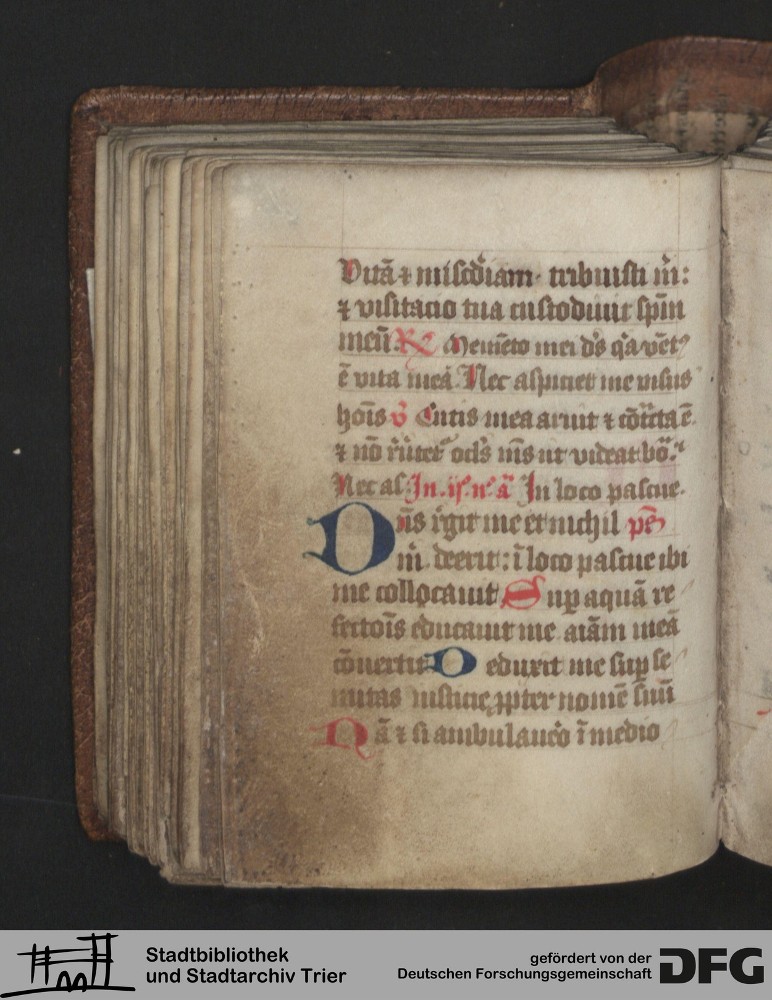 Vitā ⁊ mīscd̄iam· tribuisti m̄:
⁊ visitacio tua custodiuit sp̄m
meū. R̷ Memēto mei ds̄ q̄a vēt⁹
ē vita meā Nec aspiciet me visus
hoīs v̄ Cutis mea aruit ⁊ cōtc̄ta ē
⁊ nō
Nec as̄ In. īı̄ n̄ a̅ In loco pascue.
Dn̄s r̄git me et nichil ps̄
m̄ deerit: ī loco pascue ibi
me collocauit Sup̲ aquā re
fectoīs educauit me aīam meā
cōuertit Deduxit me sup̲ se
mitas iusticie, ꝓpter nomē suū
Nā ⁊ si ambulauēo ī medio
Stadtbibliothek
und Stadtarchiv Trier
gefördert von der
Deutschen Forschungsgemeinschaft
DFG